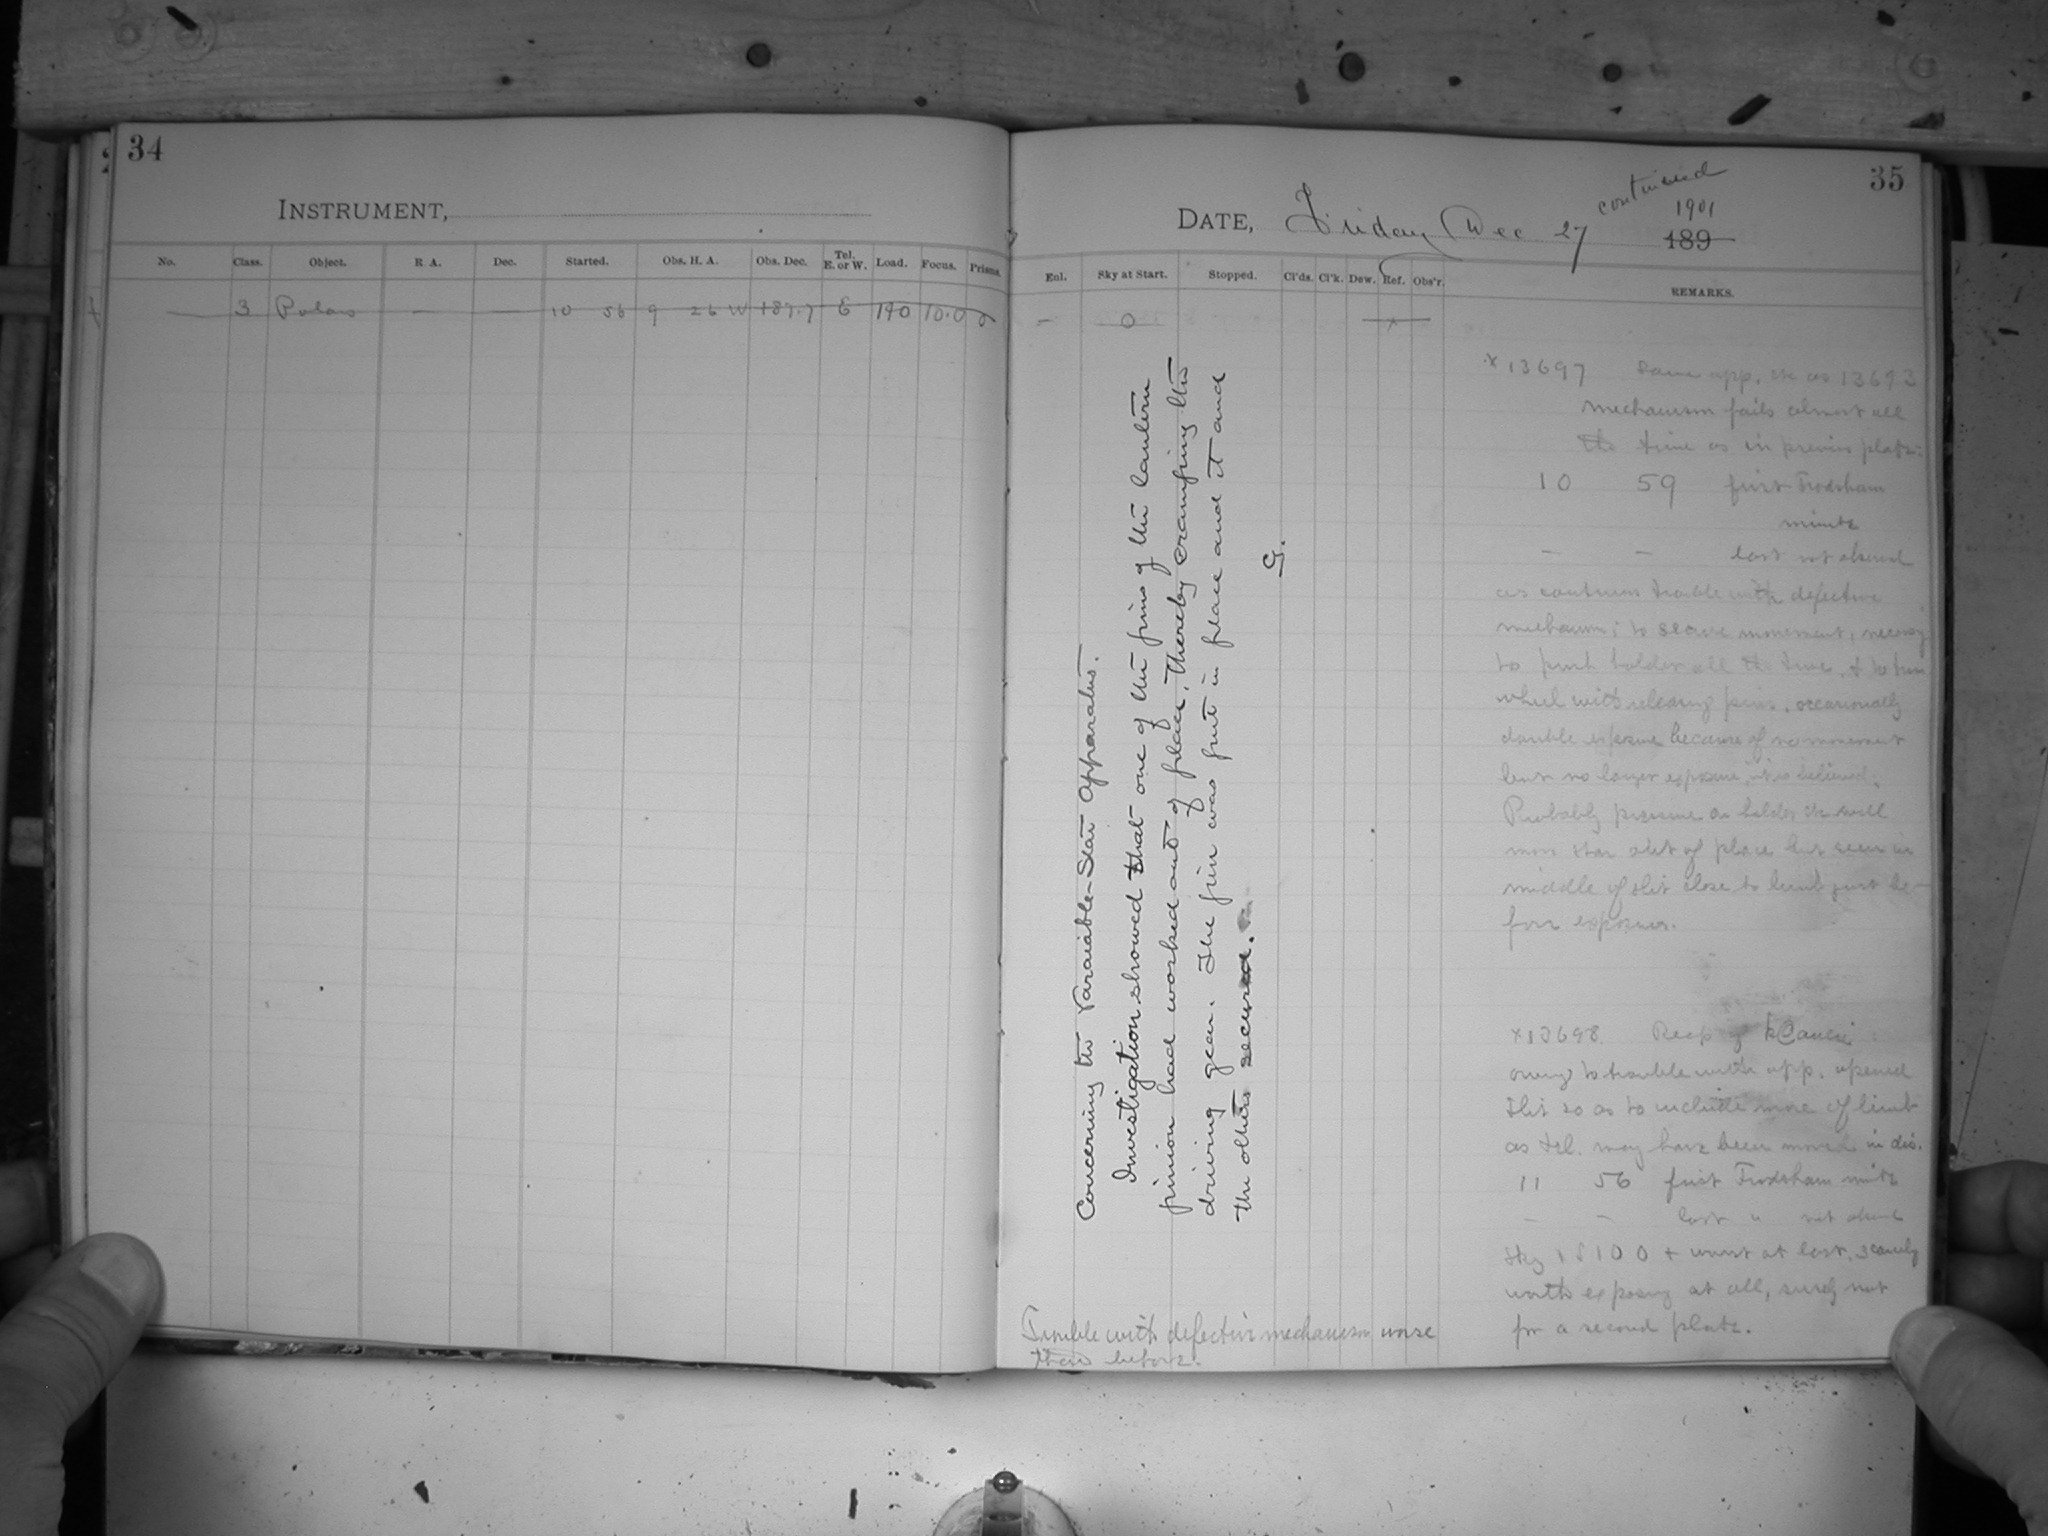 34
INSTRUMENT,
No. Class. Object. R A. Dec. Started. Obs. H. A. Obs. Dec. Tel. E. or W. Load. Focus. Prisms.
3 Polaris — — 10 56 9 26 W +87.7 E 140 10.0 0
35
DATE, Friday Dec 27 continued
1901
189
Eol. Sky at Start. Stopped. Cl'ds. Cl'k. Dew. Ref. Obs'r. REMARKS.
— 0
Concerning the Varaiable-Star Apparatus.
Investigation showed that one of the pins of the lantern
pinion had worked out of place, thereby cramping the
driving gear. The pin was put in place and it and
the others secured.
G.
x 13697 Same app. etc as 13693
mechanism fails almost all
the time as in previous plate.
10 59 first Frodsham
minute
— — last not observed
as continuous trouble with defective
mechanism; to secure movement, necessary
to push holder all the time, & to turn
wheel with releasing pins, occasionally
double exposure because of no movement
but no longer exposure, it is believed.
Probably pressure on holder etc will
move star out of place but seen in
middle of slit close to limb just be-
fore exposures.
x13698 Recp of
owing to trouble with app. opened
slit so as to include more of limb
as tel. may have been moved in dec.
11 56 first Frodsham minute
— — last " not observed
Sky 1 8 10 0 + worst at last, scarcely
worth exposing at all, surely not
for a second plate.
Trouble with defective mechanism worse
than before.